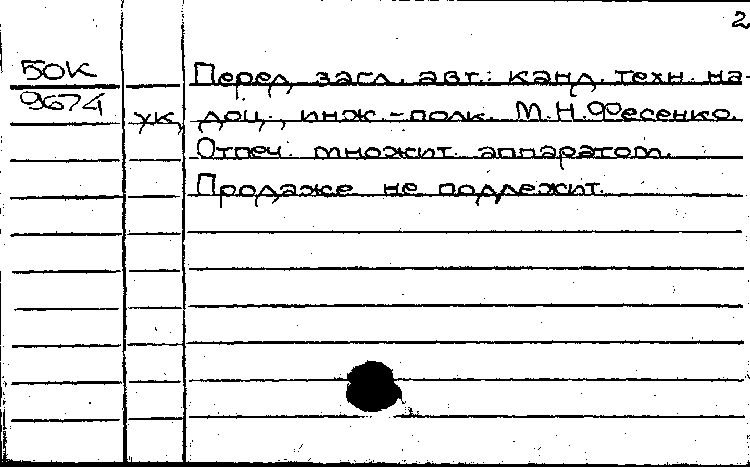 2
50К Перед загл. авт.: канд. техн. на-
9674 ук, доц., инж.-полк. М.Н.Фесенко.
Отпеч. множит. аппаратом.
Продаже не подлежит.